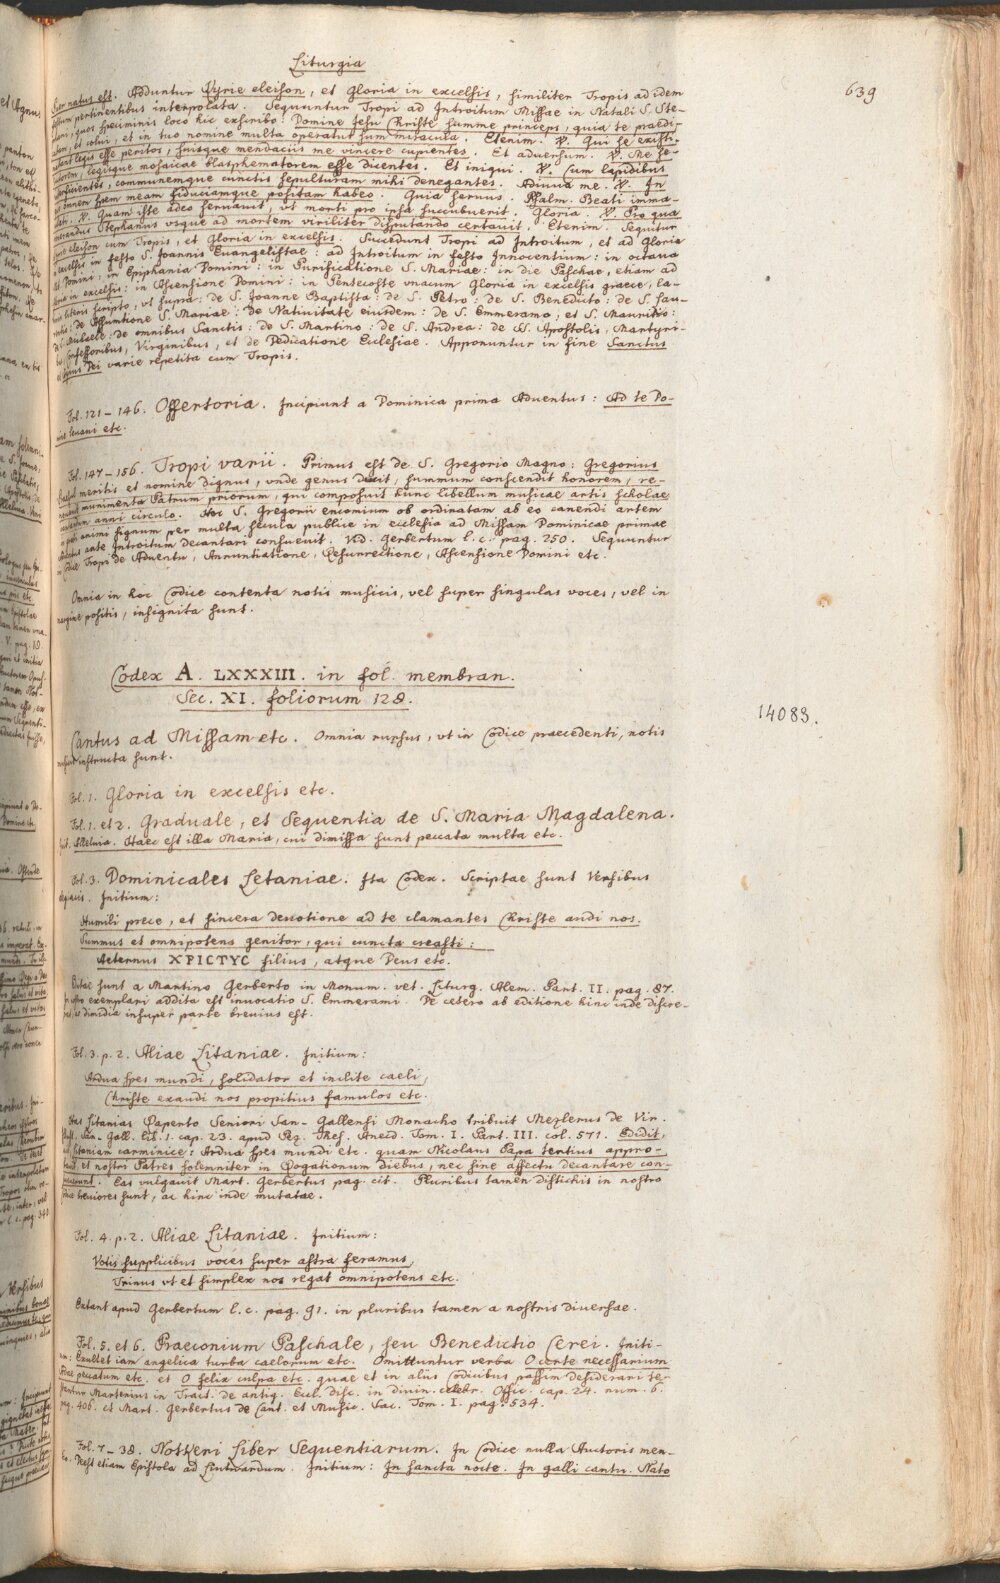 Liturgia
639
natus est. Adduntur Kyrie eleison, et Gloria in excelsis, similiter Tropis ad idem
festum pertinentibus interpolata. Sequuntur Tropi ad Introitum Missae in Natali S. Ste-
quos speciminis loco hic exscribo: Domine Jesu Christe summe princeps, quia te praedi-
et colui, et in tuo nomine multa operatus sum miracula. Etenim. V. Qui se existi-
legis esse peritos, suisque mendaciis me vincere cupientes. Et adversum. V. Me le-
legisque mosaicae blasphematorem esse dicentes. Et iniqui. V. Cum lapidibus
communemque cunctis sepulturam mihi denegantes. Adiuva me. V. In
omnem spem meam fiduciamque positam habeo. Quia servus. Psalm. Beati imma-
V. Quam iste adeo servauit, vt morti pro ipsa succubuerit. Gloria. V. Pro qua
Stephanus vsque ad mortem viriliter disputando certauit. Etenim. Sequitur
eleison cum Tropis, et Gloria in excelsis. Succedunt Tropi ad Introitum, et ad Gloria
in excelsis in festo S. Joannis Euangelistae: ad Introitum in festo Innocentium: in octaua
Domini: in Epiphania Domini: in Purificatione S. Mariae: in die Paschae, etiam ad
Gloria in excelsis: in Ascensione Domini: in Pentecoste vnacum Gloria in excelsis graece, la-
literis scripto, vt supra: de S. Joanne Baptista: de S. Petro: de S. Benedicto: de S. Lau-
de Assumtione S. Mariae: de Natiuitate eiusdem: de S. Emmeramo, et S. Mauritio:
de omnibus Sanctis: de S. Martino: de S. Andrea: de SS. Apostolis, Martyri-
Confessoribus, Virginibus, et de Dedicatione Ecclesiae. Apponuntur in fine Sanctus
Dei varie repetita cum Tropis.
Fol. 121–146. Offertoria. Incipiunt a Dominica prima Aduentus: Ad te Do-
leuaui etc.
Fol. 147–156. Tropi varii. Primus est de S. Gregorio Magno: Gregorius
meritis et nomine dignus, vnde genus ducit, summum conscendit honorem, re-
munimenta Patrum priorum, qui composuit hunc libellum musicae artis scholae
anni circulo. Hoc S. Gregorii encomium ob ordinatam ab eo canendi artem
animi signum per multa secula publice in ecclesia ad Missam Dominicae primae
ante Introitum decantari consueuit. Vid. Gerbertum l. c. pag. 250. Sequuntur
Tropi de Aduentu, Annuntiatione, Resurrectione, Ascensione Domini etc.
Omnia in hoc Codice contenta notis musicis, vel super singulas voces, vel in
margine positis, insignita sunt.
Codex A. LXXXIII. in fol. membran.
Sec. XI. foliorum 128.
14083.
Cantus ad Missam etc. Omnia rursus, vt in Codice praecedenti, notis
instructa sunt.
Fol. 1. Gloria in excelsis etc.
Fol. 1. et 2. Graduale, et Sequentia de S. Maria Magdalena.
Alleluia. Haec est illa Maria, cui dimissa sunt peccata multa etc.
Fol. 3. Dominicales Letaniae. Ita Codex. Scriptae sunt Versibus
Initium:
Humili prece, et sincera deuotione ad te clamantes Christe audi nos.
Summus et omnipotens genitor, qui cuncta creasti:
Aeternus XPICTYC filius, atque Deus etc.
Editae sunt a Martino Gerberto in Monum. vet. Liturg. Alem. Part. II. pag. 87.
exemplari addita est inuocatio S. Emmerami. De cetero ab editione hinc inde discre-
dimidia insuper parte breuius est.
Fol. 3. p. 2. Aliae Litaniae. Initium:
Ardua spes mundi, solidator et inclite caeli,
Christe exaudi nos propitius famulos etc.
Has litanias Raperto Seniori San-Gallensi Monacho tribuit Mezlerus de Vir.
San-Gall. lib. 1. cap. 23. apud Pez. Thes. Anecd. Tom. I. Part. III. col. 571. Edidit,
litaniam carminice: Ardua spes mundi etc. quam Nicolaus Papa tertius appro-
et nostri Patres solemniter in Rogationum diebus, nec sine affectu decantare con-
Eas vulgauit Mart. Gerbertus pag. cit. Pluribus tamen distichis in nostro
breuiores sunt, ac hinc inde mutatae.
Fol. 4. p. 2. Aliae Litaniae. Initium:
Votis supplicibus voces super astra feramus,
Trinus vt et simplex nos regat omnipotens etc.
Extant apud Gerbertum l. c. pag. 91. in pluribus tamen a nostris diuersae.
Fol. 5. et 6. Praeconium Paschale, seu Benedictio Cerei. Initi-
um: Exultet iam angelica turba caelorum etc. Omittuntur verba O certe necessarium
Adae peccatum etc. et O felix culpa etc. quae et in aliis Codicibus passim desiderari te-
stantur Martenius in Tract. de antiq. Eccl. disc. in diuin. celebr. Offic. cap. 24. num. 6.
pag. 406. et Mart. Gerbertus de Cant. et Music. Sac. Tom. I. pag. 534.
Fol. 7–38. Notkeri Liber Sequentiarum. In Codice nulla Auctoris men-
Deest etiam Epistola ad Liutwardum. Initium: In sancta nocte. In galli cantu. Nato